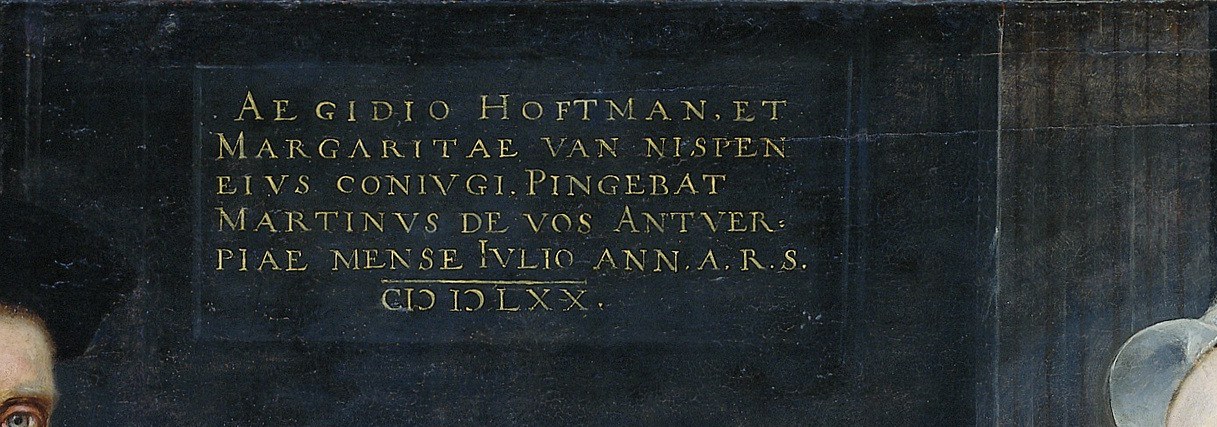 AEGIDIO HOFTMAN, ET
MARGARITAE VAN NISPEN
EIVS CONIVGI. PINGEBAT
MARTINVS DE VOS ANTVER:
PIAE MENSE IVLIO ANN. A. R. S.
CIↃ IↃLXX.